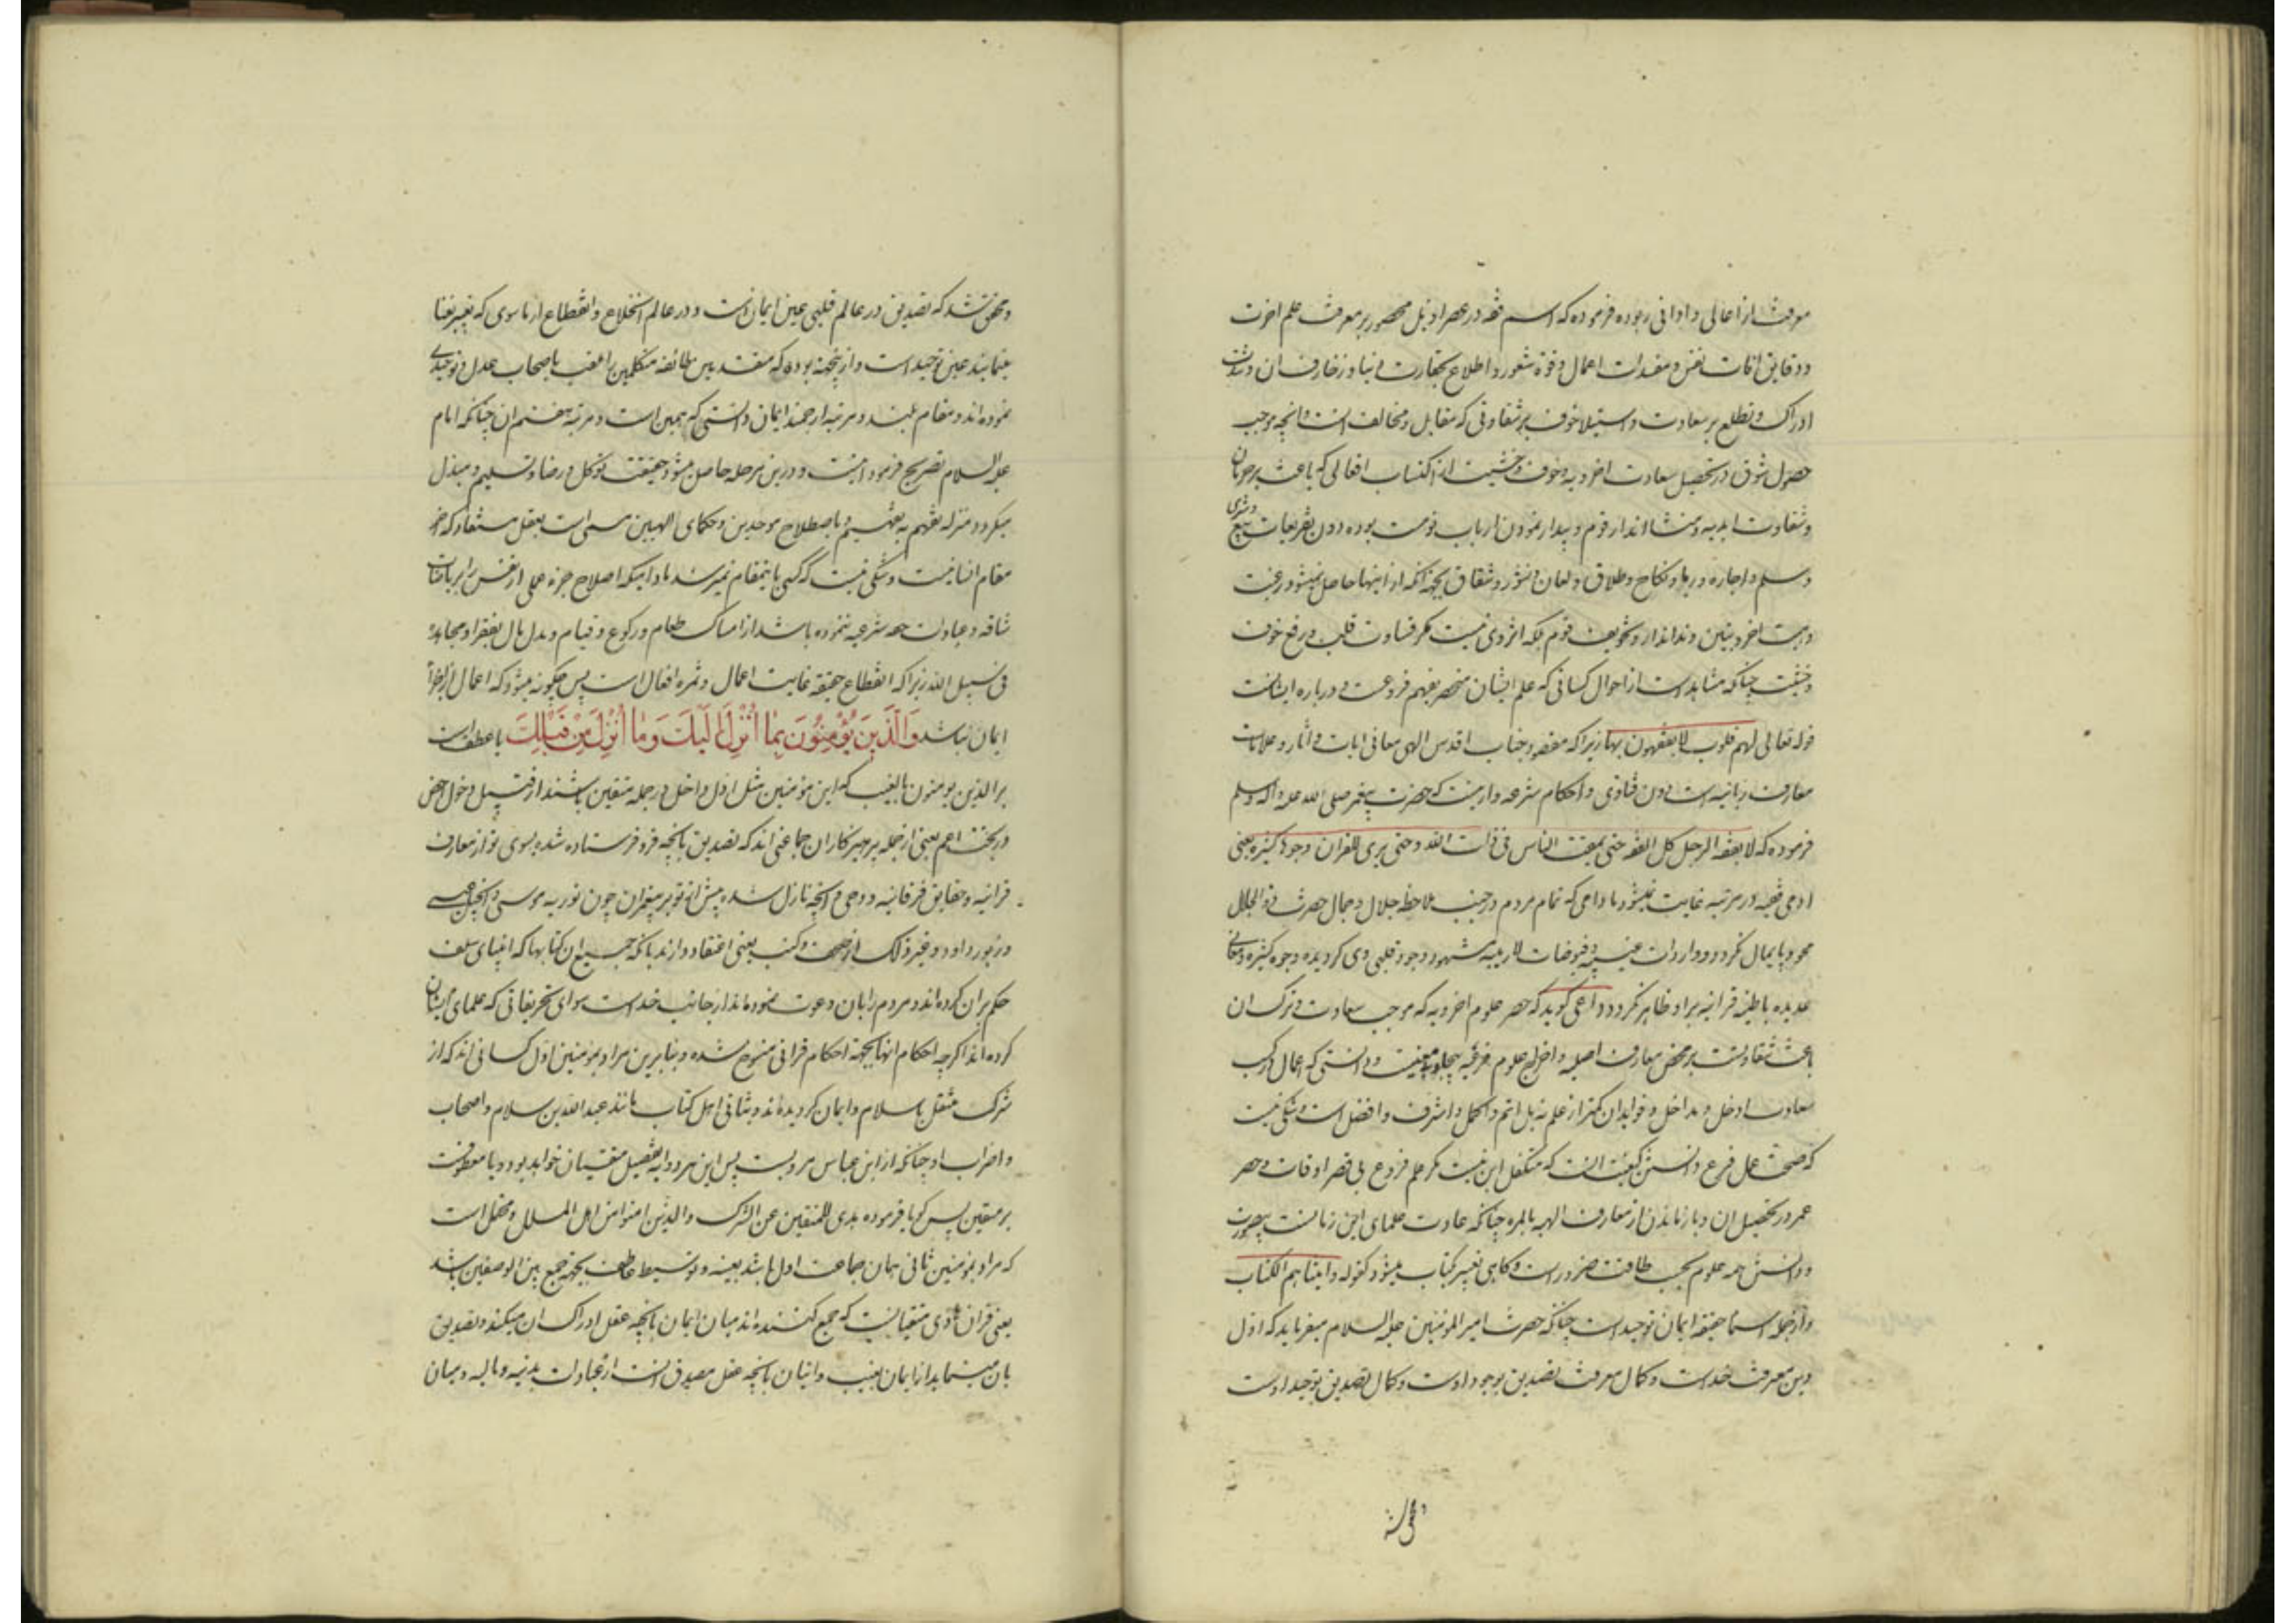 معرفت از اعالی و ادانی ربوده فرموده که اسم فقه در عصر اول محصور بر معرفت علم اخرت
و دقایق افات نفس و مفسدات اعمال و قوة شعور و اطلاع بحقارت دنیا و زخارف ان و شدت
ادراک و تطلع بر سعادت و استیلا خوف بر شقاوتی که مقابل و مخالف انست و انچه موجب
حصول شوق در تحصیل سعادت اخرویه و خوف و خشیت از اکتساب افعالی که باعث بر حرمان
و شقاوت ابدیه و منشا انذار قوم و بیدار نمودن ارباب نومست بوده دون تفریعات بیع و شری
و سلم و اجاره و ربا و نکاح و طلاق و لعان و نشوز و شقاق بجهة آنکه از اینها حاصل نمیشود رغبت
و رهبت اخروییین و نه انذار و تخویف قوم بلکه اثر وی نیست مکر قساوت قلب و رفع خوف
و خشیت چنانکه مشاهد است از احوال کسانی که علم ایشان منحصر بفهم فروعست و درباره ایشانست
قوله تعالی لهم قلوب لا یفقهون بها زیرا که مقصود جناب اقدس الهی معانی ایات و اثار و علامات
معارف ربانیه است دون فتاوی و احکام شرعیه و ارینست که حضرت پیغمبر صلی الله علیه و اله و سلم
فرموده که لا یفقه الرجل کل الفقه حتی یمقت الناس فی ذات الله و حتی یری للقران وجوها کثیرة یعنی
ادمی فقیه در مرتبه غایت نمیشود تا دامی که تمام مردم در جنب ملاحظه جلال و جمال حضرت ذو الجلال
محو و پایمال نکردد و واردات غیبیه و فیوضات لاریبیه مشهود وجود قلبی وی کردیده وجوه کثیره و معانی
عدیده باطنیه قرانیه بر او ظاهر نکردد و داعی کوید که حصر علوم اخرویه که موجب سعادت و ترک ان
باعث شقاوتست بر محض معارف اصلیه و اخراج علوم فرعیه بیجاو بیمعنیست و دانستی که اعمال در کسب
سعادت ادخل و مداخل و فواید ان کمتر از علم نه بل اتم و اکمل و اشرف و افضل است و شکی نیست
که صحت عمل فرع دانستن کیفیت انست که متکفل این نیست مکر علم فروع بی قصر اوقات و حصر
عمر در تحصیل ان و باز ماندن از معارف الهیه بالمره چنانکه عادت علمای این زمانست بیصورت
و دانستن همه علوم بحسب طاقت ضرور است و کاهی تعبیر بکتاب میشود کقوله و اتیناهم الکتاب
و از جمله اسما حقیقة ایمان توحید است چنانکه حضرت امیر المومنین علیه السلام میفرماید که اول
دین معرفت خداست و کمال معرفت تصدیق بوجود اوست و کمال تصدیق توحید اوست
و محقق شد
و محقق شد که تصدیق در عالم قلبی عین ایمان است و در عالم انخلاع و انقطاع از ماسوی که تعبیر بفنا
مینمایند عین توحید است و از ینجهة بوده که متقدمین طائفه متکلمین را لقب باصحاب عدل و توحیدی
نموده اند و مقام بلند و مرتبه ارجمند ایمان دانستی که همین است و مرتبه هفتم ان چنانکه امام
علیه السلام تصریح فرمود اینست و درین مرحله حاصل میشود حقیقت توکل و رضا و تسلیم و مبذل
میکردد منزله تفهم به تفهیم و باصطلاح موحدین و حکمای الهیین مسمی است بعقل مستفاد که اخر
مقام انسانیست و شکی نیست که کسی باینمقام نمیرسد مادامیکه اصلاح جزء عملی از نفس را بریاضات
شاقه و عبادت حقه شرعیه ننموده باشد از امساک طعام و رکوع و قیام و بذل مال بفقرا و مجاهده
فی سبیل الله زیرا که انقطاع حقیقة غایت اعمال و ثمره افعال است پس چکونه میشود که اعمال از لوازم
ایمان نباشد وَالَّذینَ یُؤْمِنُونَ بِما اُنْزِلَ اِلَیْکَ وَما اُنْزِلَ مِنْ قَبْلِکَ یا عطف است
بر الذین یومنون بالغیب که این مومنین مثل اول داخل در جمله متقین باشند از قبیل دخول اخص
در تحت اعم یعنی از جمله پرهیزکاران جماعتی اند که تصدیق بانچه فرو فرستاده شده بسوی تو از معارف
قرانیه و حقایق فرقانیه و وحی و انچه نازل شده پیش از تو بر پیغمبران چون توریه موسی و انجیل عیسی
و زبور داود و غیر ذلک از صحف و کتب یعنی اعتقاد دارند بانکه جمیع ان کتابها که انبیای سلف
حکم بران کرده اند و مردم را بان دعوت نموده اند از جانب خداست سوای تحریفاتی که علمای ایشان
کرده اند اکرچه احکام انها بجهة احکام قرانی منسوخ شده و بنابرین مراد بمومنین اول کسانی اند که از
شرک منتقل باسلام و ایمان کردیده اند و بثانی اهل کتاب مانند عبد الله بن سلام و اصحاب
و اضراب او چنانکه از ابن عباس مرویست پس این هر دو به تفصیل متقیان خواهد بود و یا معطوفست
بر متقین پس کویا فرموده هدی للمتقین عن الشرک و الذین امنوا من اهل الملل و محتمل است
که مراد بمومنین ثانی همان جماعت اول باشد بعینه و توسیط عاطف بجهة جمع بین الوصفین باشد
یعنی قران هادی متقیانیست که جمع کننده اند میان ایمان بانچه عقل ادراک ان میکند و تصدیق
بان مینماید از ایمان بغیب و اتیان بانچه عقل مصدق انست از عبادات بدنیه و مالیه و میان